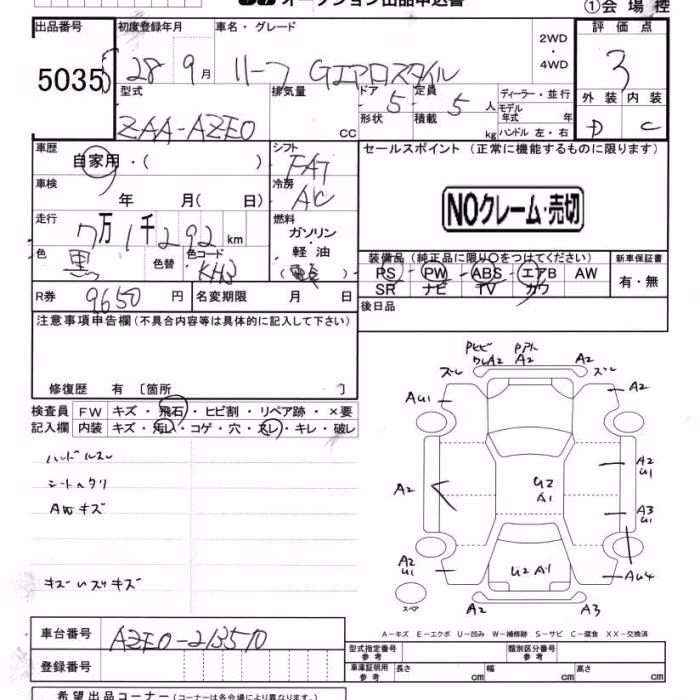 オークション出品申込書
①会場控
出品番号 5035
初度登録年月 28 9月
車名・グレード リーフ Gエアロスタイル
2WD・4WD
評価点 3
外装 D 内装 C
型式 ZAA-AZE0
排気量 CC
ドア 5 定員 5人
形状 積載 kg
ディーラー・並行
モデル年式 年
ハンドル 左・右
車歴 自家用・( )
シフト FAT
セールスポイント(正常に機能するものに限ります)
車検 年 月( 日)
冷房 AC
NOクレーム・売切
走行 7万1千292km
燃料 ガソリン・軽油
色 黒 色替 色コード KH3
装備品(純正品に限り○をつけてください)
PS・PW・ABS・エアB AW
SR ナビ TV カワ
新車保証書 有・無
R券 9650円 名変期限 月 日
後日品
注意事項申告欄(不具合内容等は具体的に記入して下さい)
修復歴 有 [箇所 ]
検査員記入欄
FW キズ・飛石・ヒビ割・リペア跡・×要
内装 キズ・汚れ・コゲ・穴・スレ・キレ・破レ
ハンドルスレ
シートヘタリ
A瓦キズ
A2 A2
ズレ ズレ
AU1 A2
A2 U2 A1 A2 U1
A3 U1
A2 U1 U2 A1 AU4
スペア A2 A3
A-キズ E-エクボ U-凹み W-補修跡 S-サビ C-腐食 XX-交換済
車台番号 AZE0-213510
登録番号
型式指定番号 参考 類別区分番号 参考
車庫証明用 参考 長さ cm 幅 cm 高さ cm
希望出品コーナー(コーナーは各会場により異なります。)